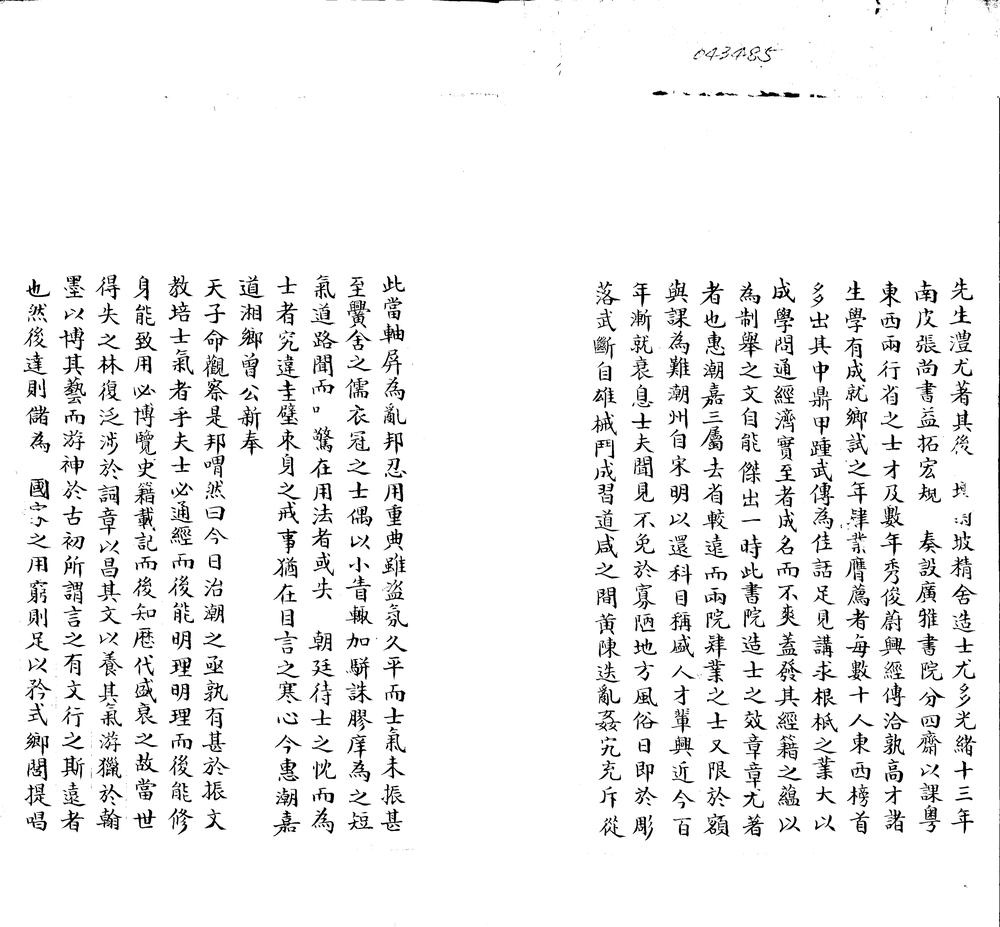 043485
先生澧尤著其後 坡精舍造士尤多光緒十三年
南皮張尚書益拓宏規 奏設廣雅書院分四齋以課粵
東西兩行省之士才及數年秀俊蔚興經傳洽孰高才諸
生學有成就鄉試之年肄業膺薦者每數十人東西榜首
多出其中鼎甲踵武傳為佳話足見講求根柢之業大以
成學問通經濟實至者成名而不爽蓋發其經籍之蘊以
為制舉之文自能傑出一時此書院造士之效章章尤著
者也惠潮嘉三屬去省較遠而兩院肄業之士又限於額
與課為難潮州自宋明以還科目稱盛人才輩興近今百
年漸就衰息士夫聞見不免於寡陋地方風俗日即於彫
落武斷自雄械鬥成習道咸之間黃陳迭亂姦宄充斥從
此當軸屏為亂邦忍用重典雖盜氛久平而士氣未振甚
至黌舍之儒衣冠之士偶以小眚輒加駢誅膠庠為之短
氣道路聞而 驚在用法者或失 朝廷待士之忱而為
士者究違圭璧束身之戒事猶在目言之寒心今惠潮嘉
道湘鄉曾公新奉
天子命觀察是邦喟然曰今日治潮之亟孰有甚於振文
教培士氣者乎夫士必通經而後能明理明理而後能修
身能致用必博覽史籍載記而後知歷代盛衰之故當世
得失之林復泛涉於詞章以昌其文以養其氣游獵於翰
墨以博其藝而游神於古初所謂言之有文行之斯遠者
也然後達則儲為 國家之用窮則足以矜式鄉閭提唱